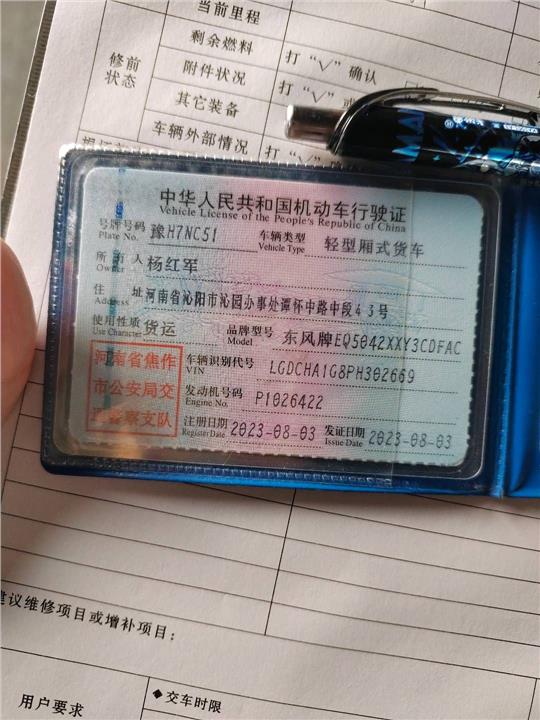 当前里程
剩余燃料
修前
状态
打“√”确认
附件状况
打“√”
其它装备
车辆外部情况
打“√”
中华人民共和国机动车行驶证
Vehicle License of the People's Republic of China
号牌号码 豫H7NC51 车辆类型 轻型厢式货车
Plate No. Vehicle Type
所有人 杨红军
Owner
住址 河南省沁阳市沁园办事处谭怀中路中段43号
Address
使用性质 货运 品牌型号 东风牌EQ5042XXY3CDFAC
Use Character Model
河南省焦作
市公安局交
通警察支队
车辆识别代号 LGDCHA1G8PH302669
VIN
发动机号码 P1026422
Engine No.
注册日期 2023-08-03 发证日期 2023-08-03
Register Date Issue Date
建议维修项目或增补项目：
用户要求
◆交车时限